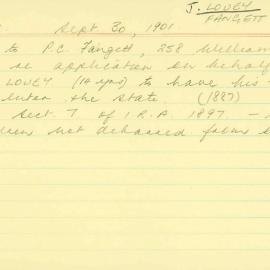 J. LOUEY
PANGETT
Sept. 30, 1901
to P.C. Fangett, 258 William
re application on behalf
LOUEY (14 yrs) to have his
enter the state. (1887)
Sect. 7 of I.R.A. 1897. —
not debarred from